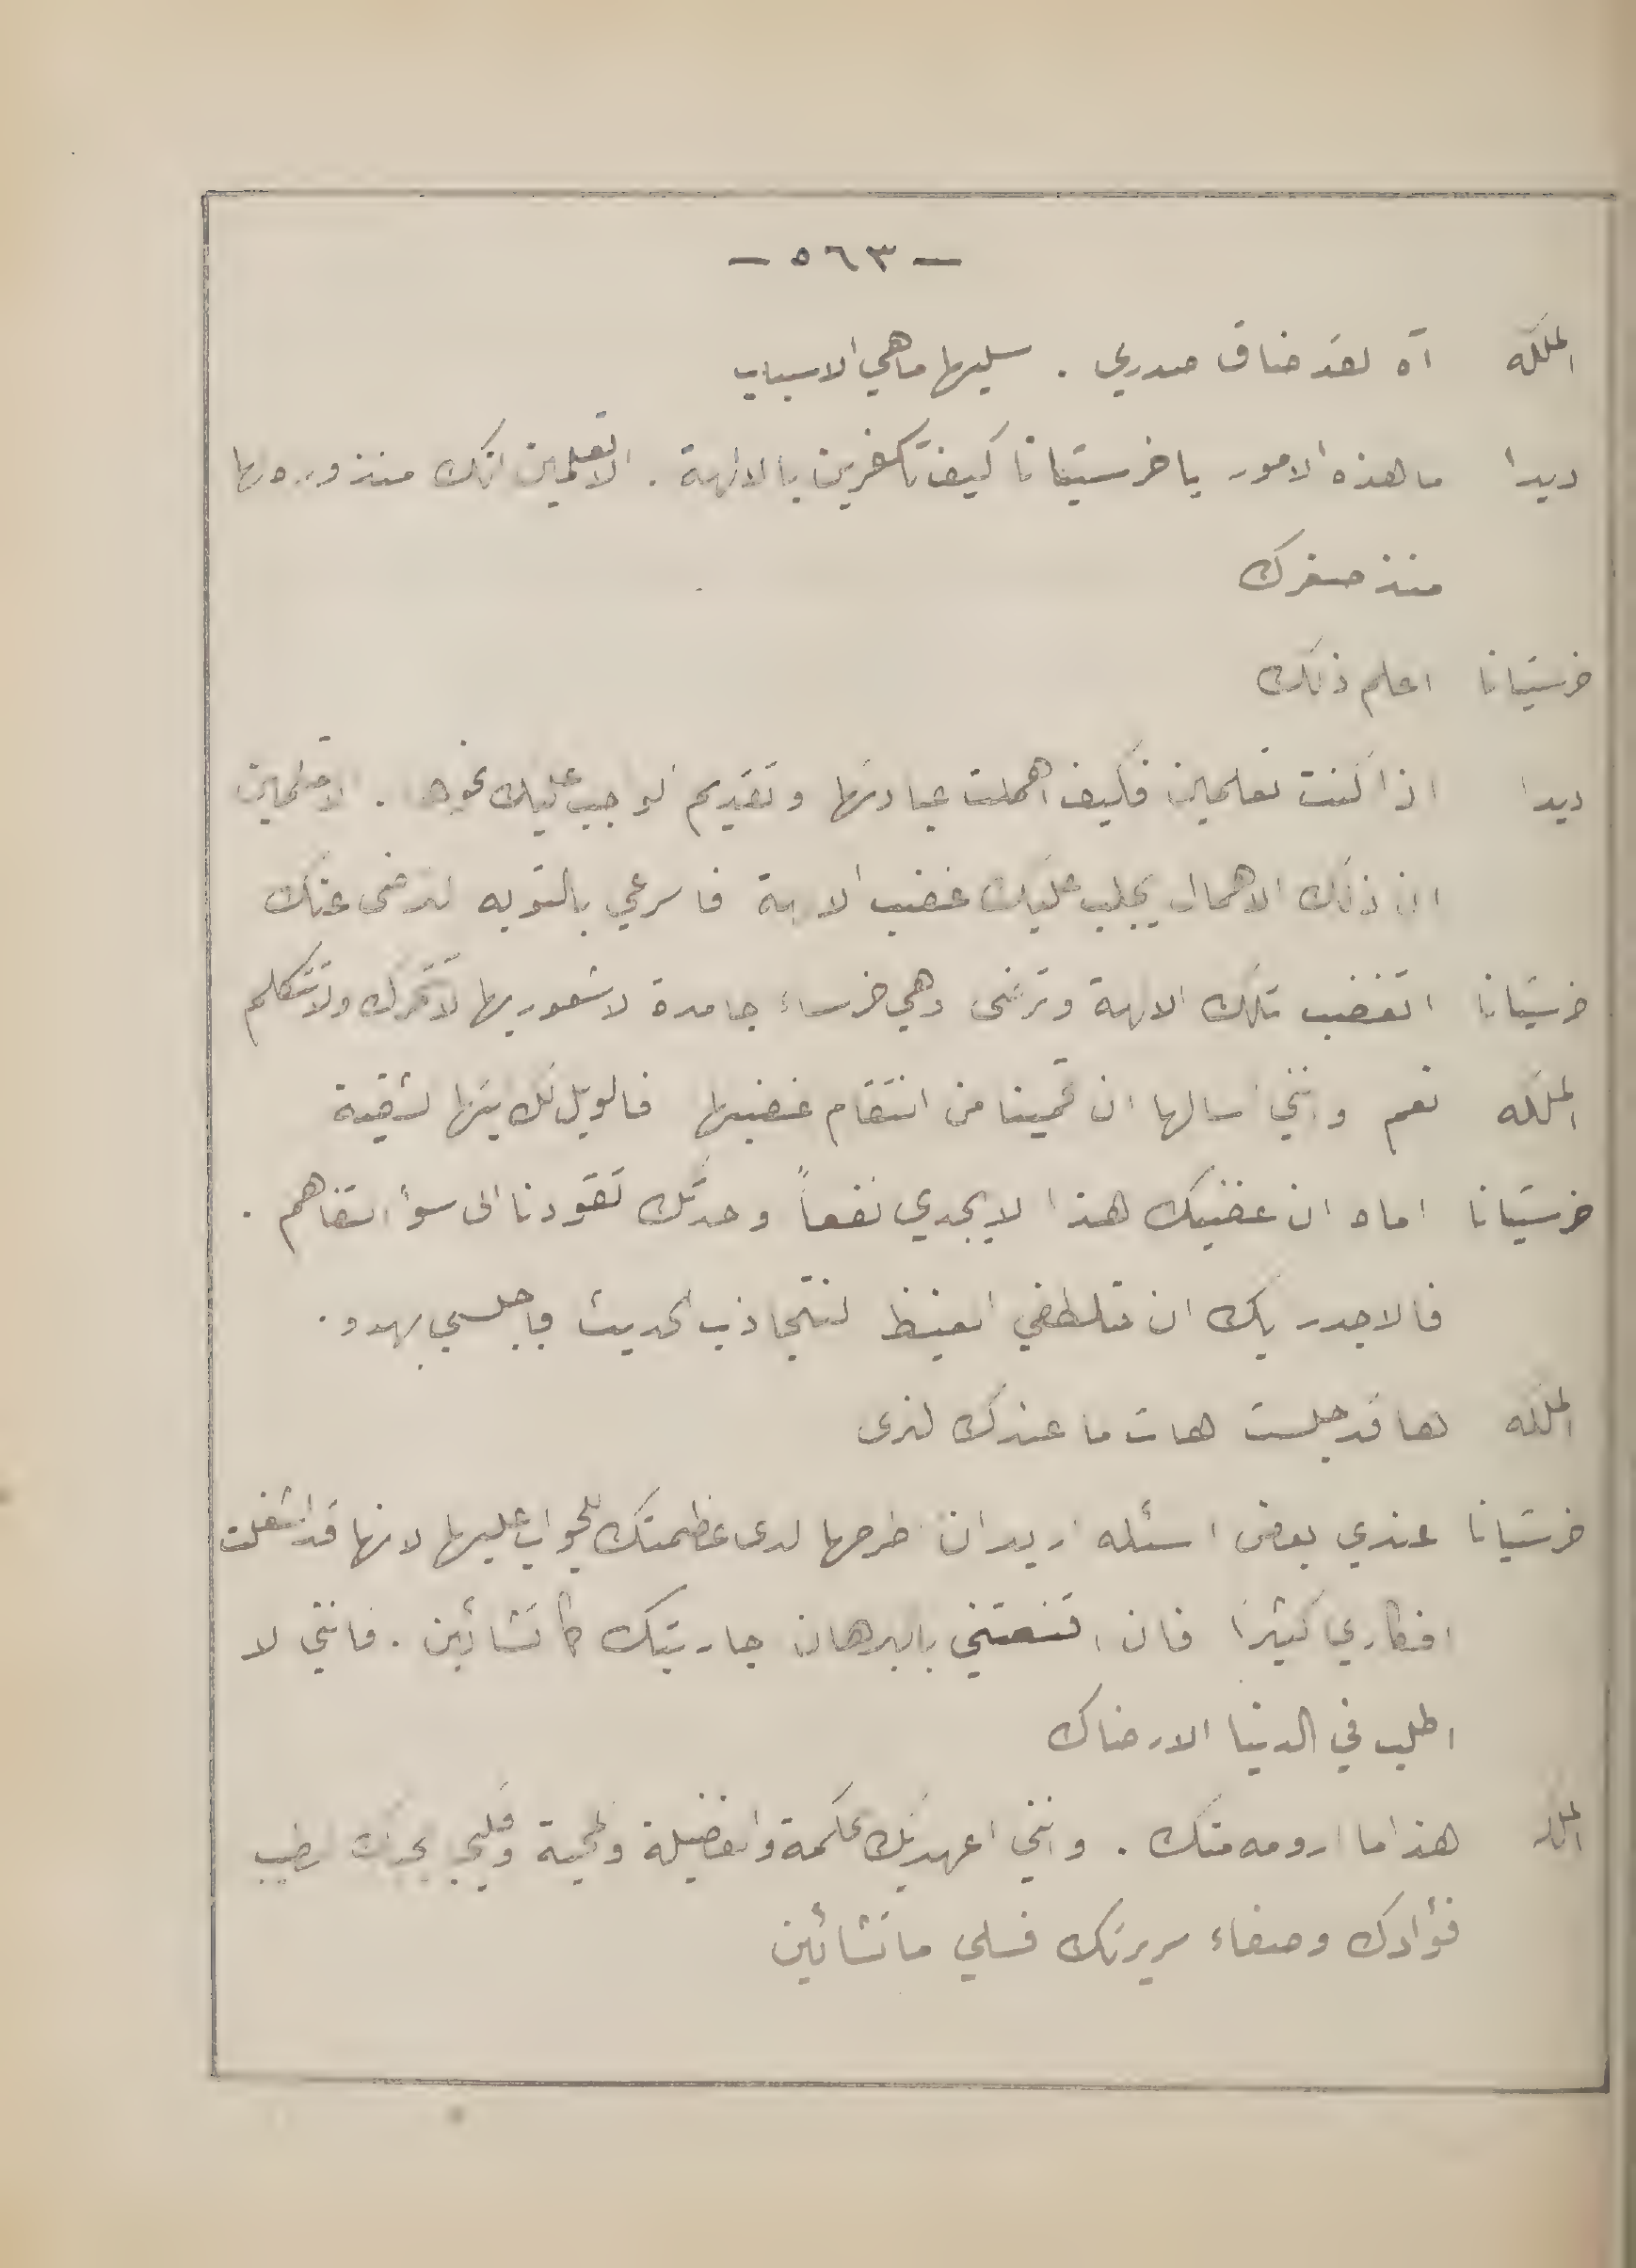 — ٥٦٣ —
الملكه آه لقد ضاق صدري . سليها ما هي الاسباب
ديدا ما هذه الامور يا خرستيانا كيف تكفرين بالالهة . الا تعلمين انك منذوره لها
منذ صغرك
خرستيانا اعلم ذلك
ديدا اذا كنت تعلمين فكيف اهملت عبادتها وتقديم الواجب عليك نحوها .
ان ذلك الاهمال يجلب عليك غضب الالهة فاسرعي بالتوبه لترضى عنك
خرستيانا اتغضب تلك الالهة وترضى وهي خرساء جامدة لا شعور بها لا تتحرك ولا تتكلم
الملكه نعم وانني اسالها ان تحمينا من انتقام غضبها فالويل لك ايتها الشقية
خرستيانا اماه ان غضبك هذا لا يجدي نفعاً وحدتك تقودنا الى سوء التفاهم .
فالاجدر بك ان تلطفي الغيظ لنتجاذب الحديث فاجلسي بهدو .
الملكه ها قد جلست هات ما عندك لنرى
خرستيانا عندي بعض اسئله اريد ان اطرحها لدى عظمتك للجواب عليها لانها قد اشغلت
افكاري كثيرا فان اقنعتني بالبرهان جاريتك كما تشائين . فانني لا
اطلب في الدنيا الا رضاك
الملكه هذا ما ارومه منك . وانني اعهد بك الحكمة والفضيلة والمحبة
فؤادك وصفاء سريرتك فسلي ما تشائين